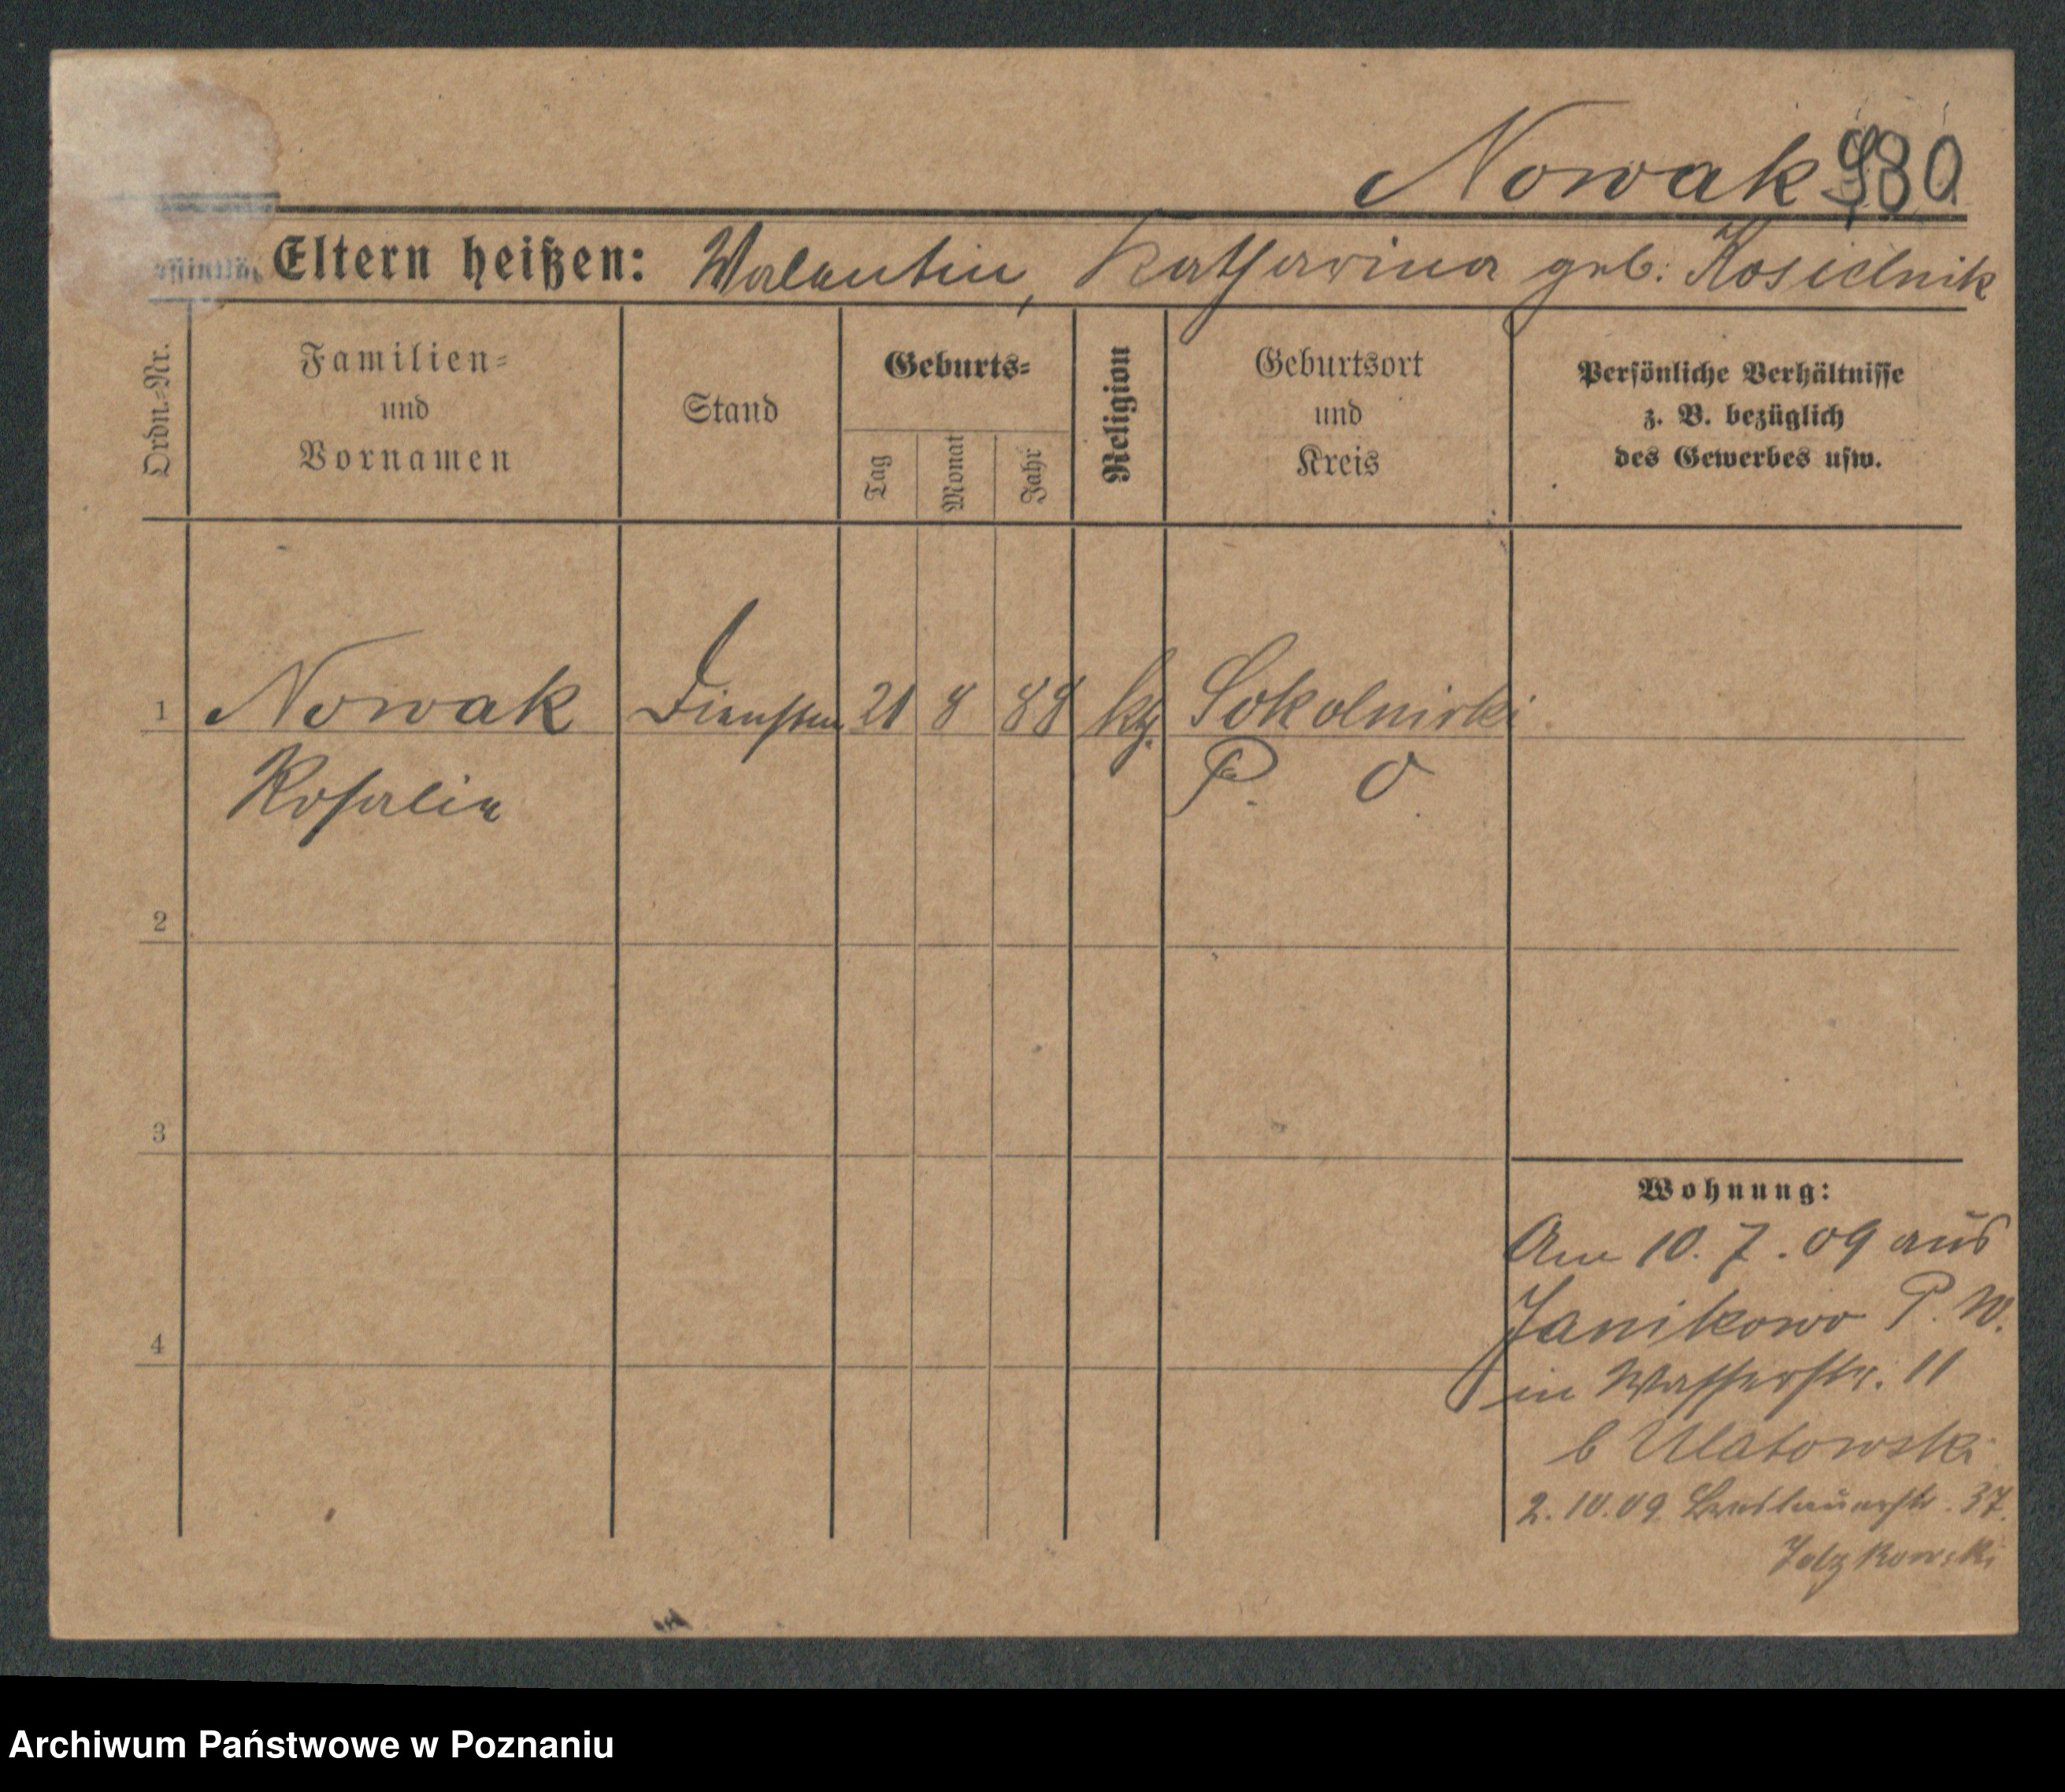 Nowak 980
Eltern heißen: Walentin, Katharina geb. Kosielnik
Ordn.-Nr.
Familien-
und
Vornamen
Stand
Geburts-
Tag
Monat
Jahr
Religion
Geburtsort
und
Kreis
Persönliche Verhältnisse
z. B. bezüglich
des Gewerbes usw.
1 Nowak 21 8 88 kg. Sokolniki
Rosalie P. O
2
3
4
Wohnung:
Am 10. 7. 09 aus
Janikowo P. W.
in Wasserstr. 11
b Ulatowski
2.10.09 Breslauerstr. 37.
Archiwum Państwowe w Poznaniu